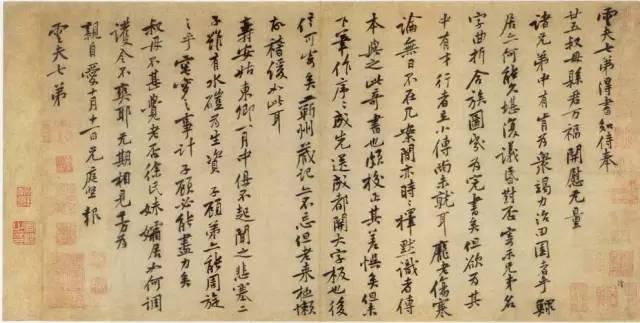 雲夫七弟得書知侍奉
廿五叔母縣君万福開慰无量
諸兄弟中有肯為衆竭力治田園者乎鰥
居亦何能久堪復議昏對否寄示兄弟名
字曲折合族圖寫為完書矣但欲為其
中有才行者立小傳尚未就耳龐老傷寒
論無日不在几案間亦時〻擇默識者傳
本與之此奇書也頗校正其差悮矣但未
下筆作序〻成先送成都開大字板也後
信可寄矣蘄州藏記亦不忘但老来極懶
故稽緩如此耳
壽安姑東卿一月中俱不起聞之悲塞二
子雖有水磑為生資子顧弟亦能周旋
之乎窀穸之事計子顧必能盡力矣
叔母不甚覺老否徐氏妹孀居如何調
護令不爽耶未期相見千万為
親自愛十月十一日兄庭堅報
雲夫七弟